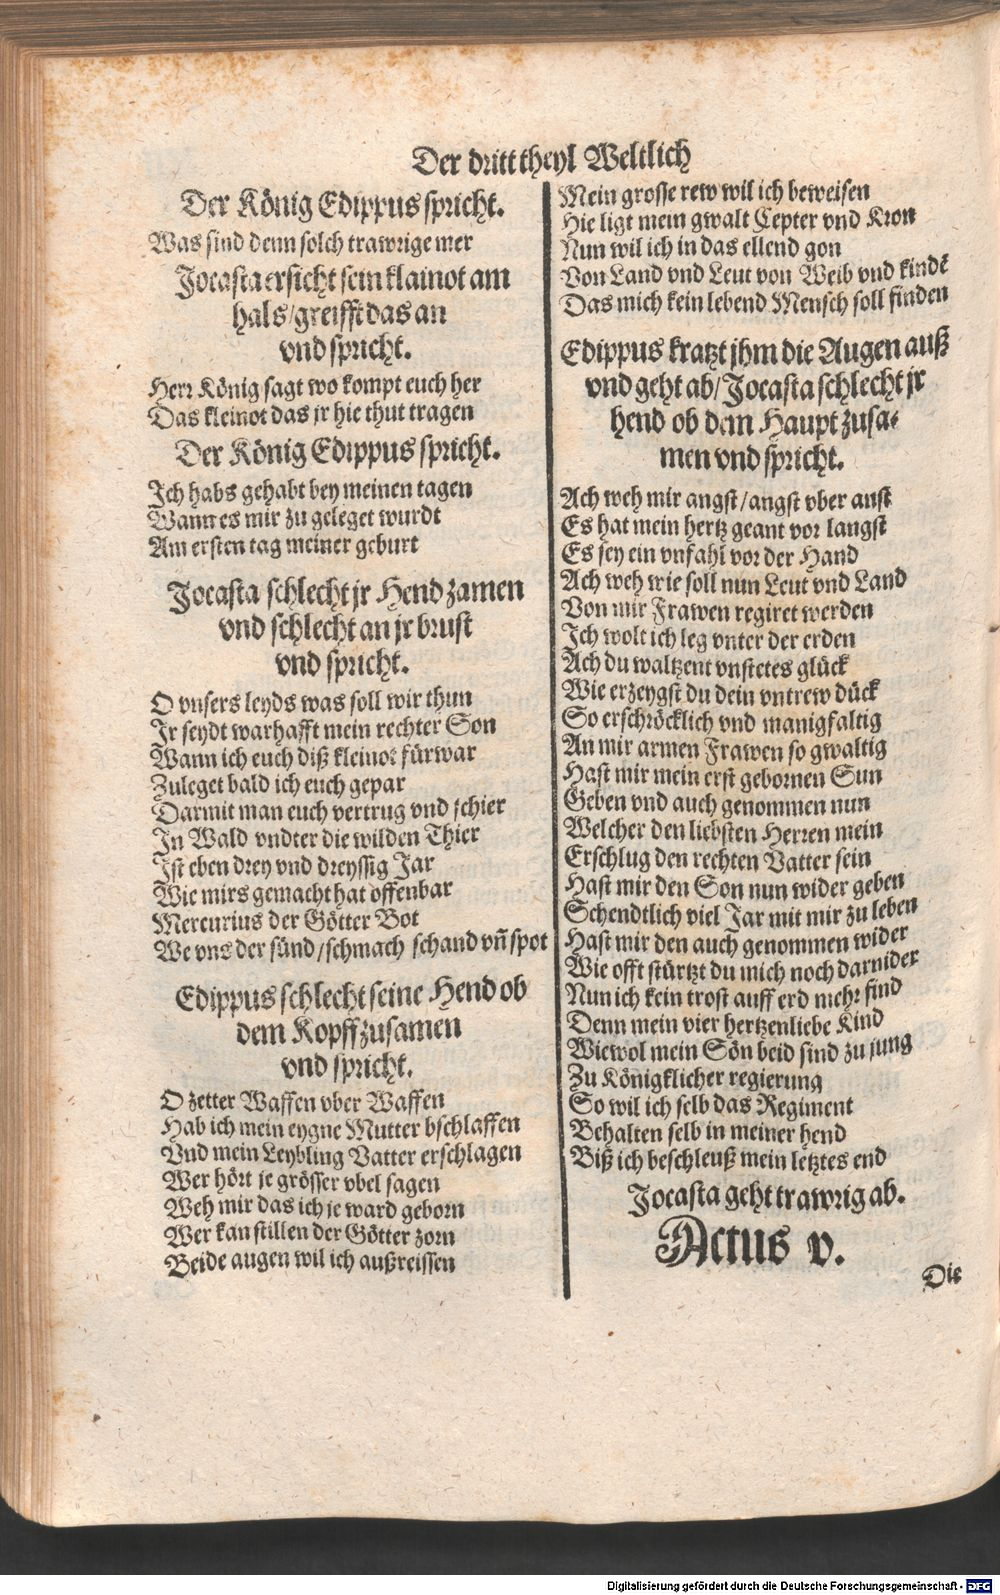 Der dritt theyl Weltlich
Der König Edippus spricht.
Was sind denn solch trawrige mer
Jocasta ersicht sein klainot am
hals/greifft das an
vnd spricht.
Herr König sagt wo kompt euch her
Das kleinot das jr hie thut tragen
Der König Edippus spricht.
Ich habs gehabt bey meinen tagen
Wann es mir zu geleget wurdt
Am ersten tag meiner geburt
Jocasta schlecht jr Hend zamen
vnd schlecht an jr brust
vnd spricht.
O vnsers leyds was soll wir thun
Ir seydt warhafft mein rechter Son
Wann ich euch diß kleinot fürwar
Zuleget bald ich euch gepar
Darmit man euch vertrug vnd schier
In Wald vndter die wilden Thier
Ist eben drey vnd dreyssig Jar
Wie mirs gemacht hat offenbar
Mercurius der Götter Bot
We vns der sünd/schmach schand vn̄ spot
Edippus schlecht seine Hend ob
dem Kopff zusamen
vnd spricht.
O zetter Waffen vber Waffen
Hab ich mein eygne Mutter bschlaffen
Vnd mein Leybling Vatter erschlagen
Wer hört je grösser vbel sagen
Weh mir das ich je ward geborn
Wer kan stillen der Götter zorn
Beide augen wil ich außreissen
Mein grosse rew wil ich beweisen
Hie ligt mein gwalt Cepter vnd Kron
Nun wil ich in das ellend gon
Von Land vnd Leut von Weib vnd kindē
Das mich kein lebend Mensch soll finden
Edippus kratzt jhm die Augen auß
vnd geht ab/Jocasta schlecht jr
hend ob dem Haupt zusa-
men vnd spricht.
Ach weh mir angst/angst vber anst
Es hat mein hertz geant vor langst
Es sey ein vnfahl vor der Hand
Ach weh wie soll nun Leut vnd Land
Von mir Frawen regiret werden
Ich wolt ich leg vnter der erden
Ach du waltzent vnstetes glück
Wie erzeygst du dein vntrew dück
So erschröcklich vnd manigfaltig
An mir armen Frawen so gwaltig
Hast mir mein erst gebornen Sun
Geben vnd auch genommen nun
Welcher den liebsten Herren mein
Erschlug den rechten Vatter sein
Hast mir den Son nun wider geben
Schendtlich viel Jar mit mir zu leben
Hast mir den auch genommen wider
Wie offt stürtzt du mich noch darnider
Nun ich kein trost auff erd mehr find
Denn mein vier hertzenliebe Kind
Wiewol mein Sön beid sind zu jung
Zu Königklicher regierung
So wil ich selb das Regiment
Behalten selb in meiner hend
Biß ich beschleuß mein letztes end
Jocasta geht trawrig ab.
Actus v.
Die
Digitalisierung gefördert durch die Deutsche Forschungsgemeinschaft - DFG